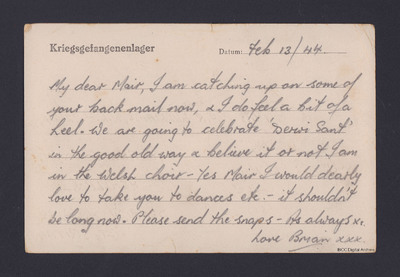 Kriegsgefangenenlager Datum: Feb 13/44
My dear Mair, I am catching up on some of
your back mail now, & I do feel a bit of a
heel. We are going to celebrate 'Dewi Sant'
in the good old way & believe it or not I am
in the Welsh choir - Yes Mair I would dearly
love to take you to dances etc. - it shouldn't
be long now. Please send the snaps - As always x.
Love Brian xxx.
BCC Digital Archive